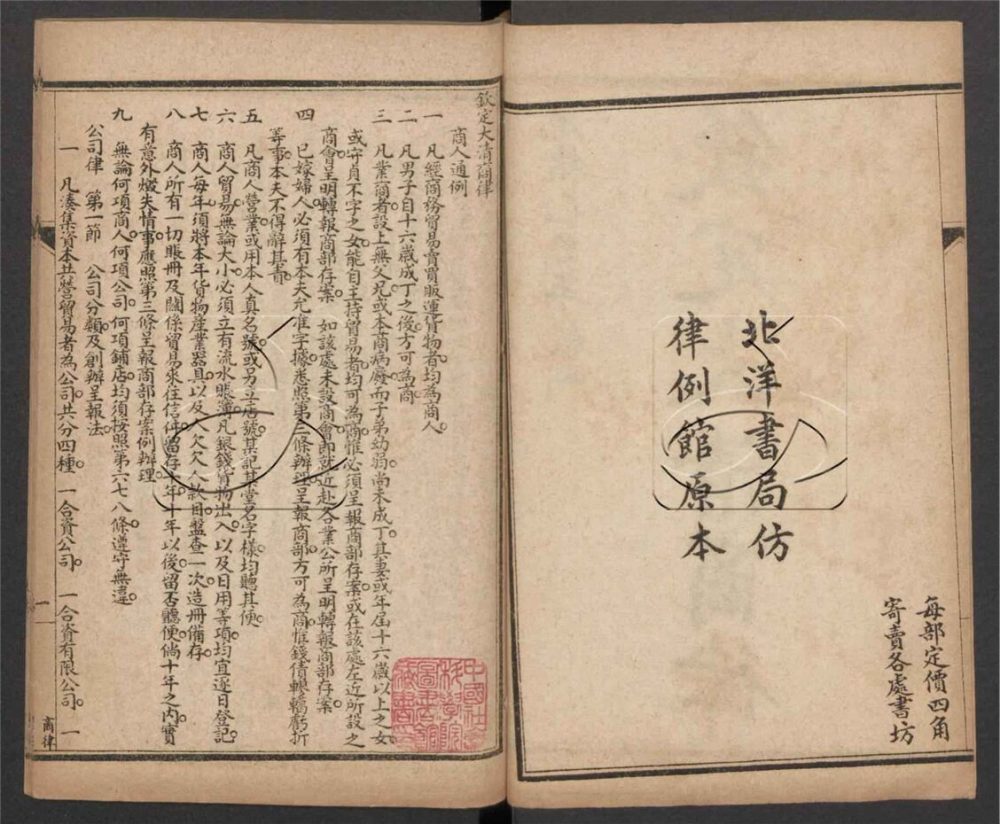 每部定價四角
寄賣各處書坊
北洋書局仿
律例館原本
欽定大清商律
商人通例
一 凡經商務貿易賣買販運貨物者均為商人
二 凡男子自十六歲成丁之後方可為商
三 凡業商者設上無父兄或本商病廢而子弟幼弱尚未成丁其妻或年屆十六歲以上之女
或守貞不字之女能自主持貿易者均可為商惟必須呈報商部存案或在該處左近所設之
商會呈明轉報商部存案 如該處未設商會即就近赴各業公所呈明轉報商部存案
四 已嫁婦人必須有本夫允准字據悉照第三條辦理呈報商部方可為商惟錢債轇轕虧折
等事本夫不得辭其責
五 凡商人營業或用本人真名號或另立店號某記某堂名字樣均聽其便
六 商人貿易無論大小必須立有流水賬簿凡銀錢貨物出入以及日用等項均宜逐日登記
七 商人每年須將本年貨物產業器具以及人欠欠人款目盤查一次造冊備存
八 商人所有一切賬冊及關係貿易來往信件留存十年十年以後留否聽便倘十年之內實
有意外燬失情事應照第三條呈報商部存案例辦理
九 無論何項商人何項公司何項鋪店均須按照第六七八條遵守無違
公司律 第一節 公司分類及創辦呈報法
一 凡湊集資本共營貿易者為公司共分四種 一合資公司 一合資有限公司 一
一
商律